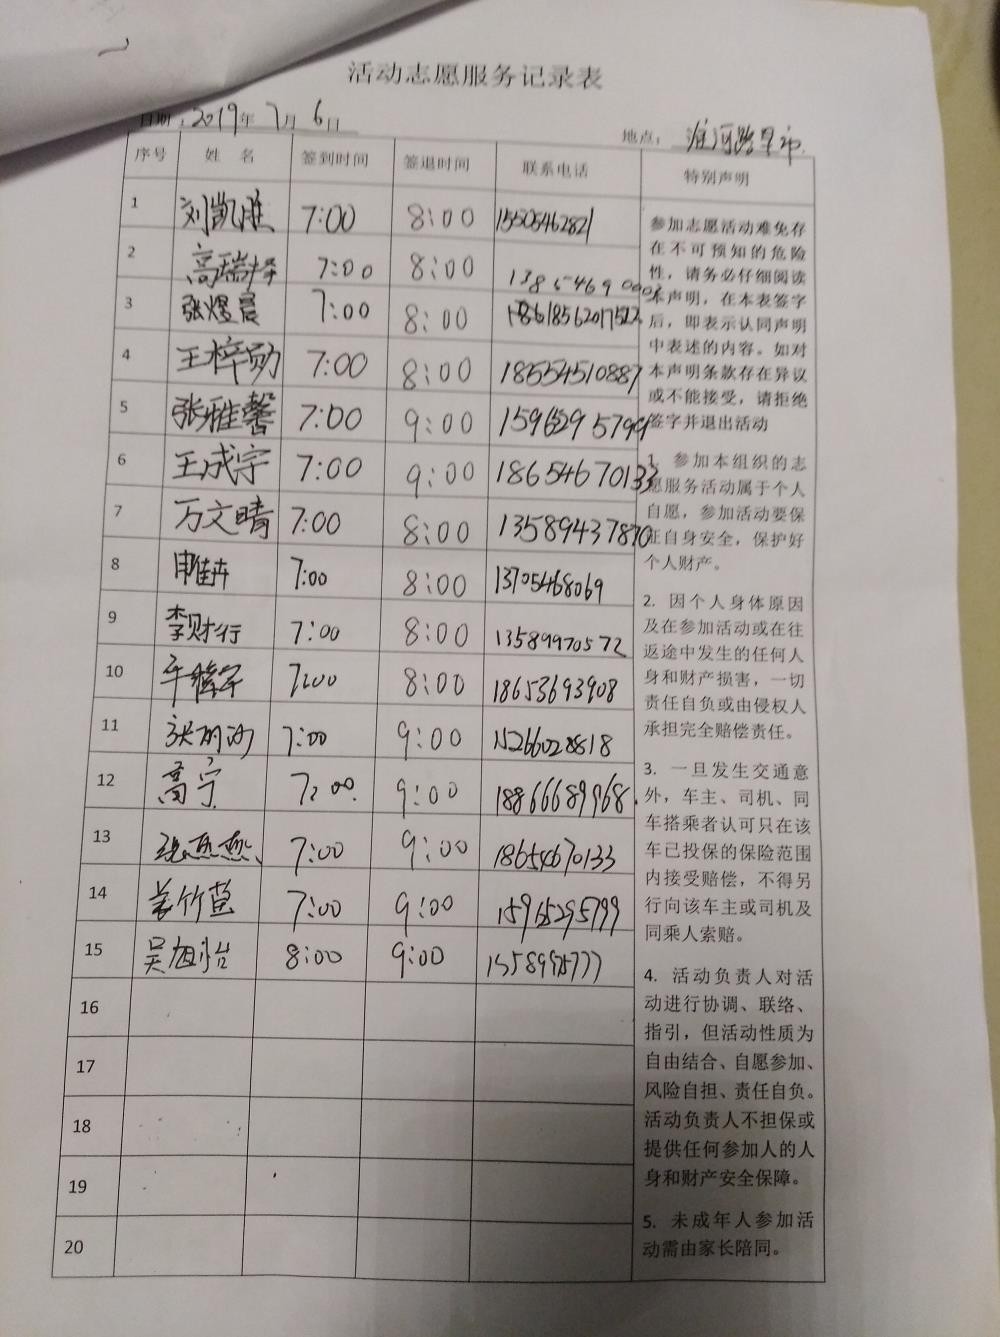 活动志愿服务记录表
日期：2019年7月6日
地点：淮河路早市
序号 姓 名 签到时间 签退时间 联系电话 特别声明
1 刘凯胜 7:00 8:00 15505462821
2 高瑞泽 7:00 8:00
3 张煜晨 7:00 8:00
4 王梓勋 7:00 8:00 18554510887
5 张雅馨 7:00 9:00 15965295799
6 王成宇 7:00 9:00 18654670133
7 万文晴 7:00 8:00 13589437870
8 7:00 8:00 13705468069
9 李财行 7:00 8:00 13589970572
10 7:00 8:00 18653693908
11 7:00 9:00 15266028818
12 高宁 7:00 9:00 18866689968
13 7:00 9:00 18654670133
14 姜竹萱 7:00 9:00 15965295799
15 吴旭怡 8:00 9:00
16
17
18
19
20
参加志愿活动难免存
在不可预知的危险
性，请务必仔细阅读
本声明，在本表签字
后，即表示认同声明
中表述的内容。如对
本声明条款存在异议
或不能接受，请拒绝
签字并退出活动
1. 参加本组织的志
愿服务活动属于个人
自愿，参加活动要保
证自身安全，保护好
个人财产。
2. 因个人身体原因
及在参加活动或在往
返途中发生的任何人
身和财产损害，一切
责任自负或由侵权人
承担完全赔偿责任。
3. 一旦发生交通意
外，车主、司机、同
车搭乘者认可只在该
车已投保的保险范围
内接受赔偿，不得另
行向该车主或司机及
同乘人索赔。
4. 活动负责人对活
动进行协调、联络、
指引，但活动性质为
自由结合、自愿参加、
风险自担、责任自负。
活动负责人不担保或
提供任何参加人的人
身和财产安全保障。
5. 未成年人参加活
动需由家长陪同。